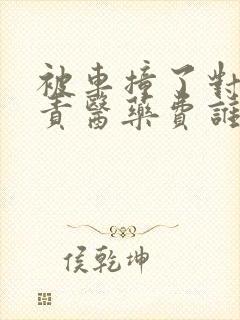 被車撞了對
責醫藥費誰
侯乾坤